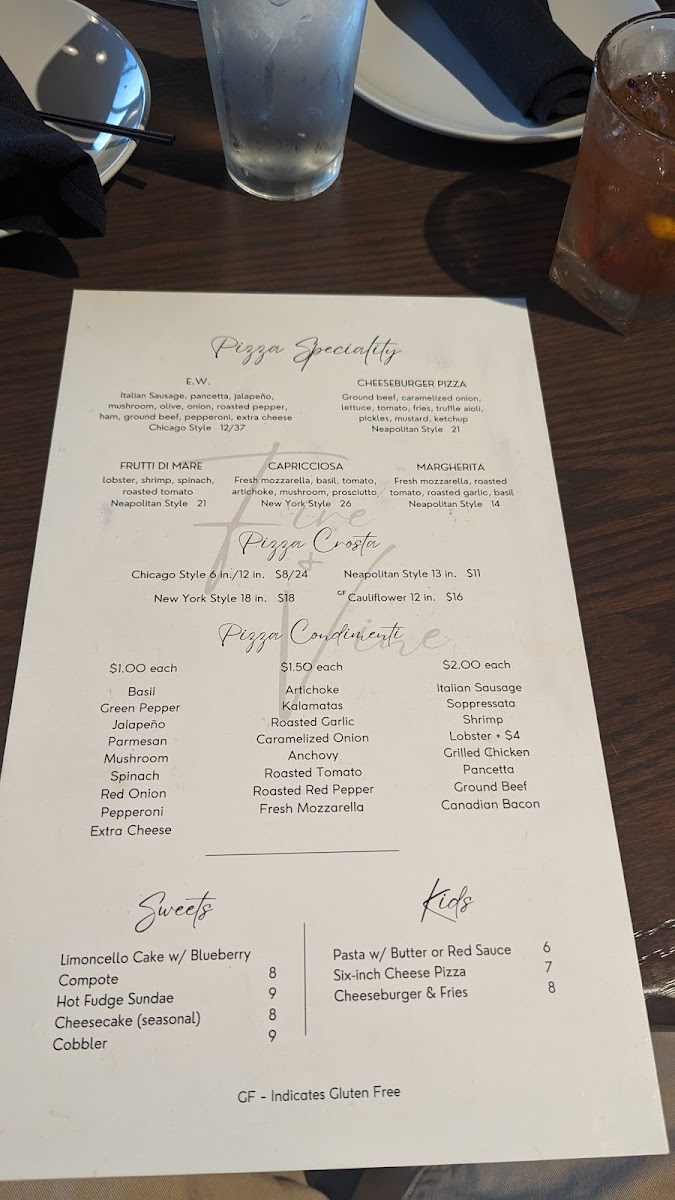 Pizza Speciality
E.W.
Italian Sausage, pancetta, jalapeño,
mushroom, olive, onion, roasted pepper,
ham, ground beef, pepperoni, extra cheese
Chicago Style 12/37
CHEESEBURGER PIZZA
Ground beef, caramelized onion,
lettuce, tomato, fries, truffle aioli,
pickles, mustard, ketchup
Neapolitan Style 21
FRUTTI DI MARE
lobster, shrimp, spinach,
roasted tomato
Neapolitan Style 21
CAPRICCIOSA
Fresh mozzarella, basil, tomato,
artichoke, mushroom, prosciutto
New York Style 26
MARGHERITA
Fresh mozzarella, roasted
tomato, roasted garlic, basil
Neapolitan Style 14
Fire
&
Vine
Pizza Crosta
Chicago Style 6 in./12 in. $8/24
Neapolitan Style 13 in. $11
New York Style 18 in. $18
GF Cauliflower 12 in. $16
Pizza Condimenti
$1.00 each
Basil
Green Pepper
Jalapeño
Parmesan
Mushroom
Spinach
Red Onion
Pepperoni
Extra Cheese
$1.50 each
Artichoke
Kalamatas
Roasted Garlic
Caramelized Onion
Anchovy
Roasted Tomato
Roasted Red Pepper
Fresh Mozzarella
$2.00 each
Italian Sausage
Soppressata
Shrimp
Lobster + $4
Grilled Chicken
Pancetta
Ground Beef
Canadian Bacon
Sweets
Limoncello Cake w/ Blueberry
Compote 8
Hot Fudge Sundae 9
Cheesecake (seasonal) 8
Cobbler 9
Kids
Pasta w/ Butter or Red Sauce 6
Six-inch Cheese Pizza 7
Cheeseburger & Fries 8
GF - Indicates Gluten Free